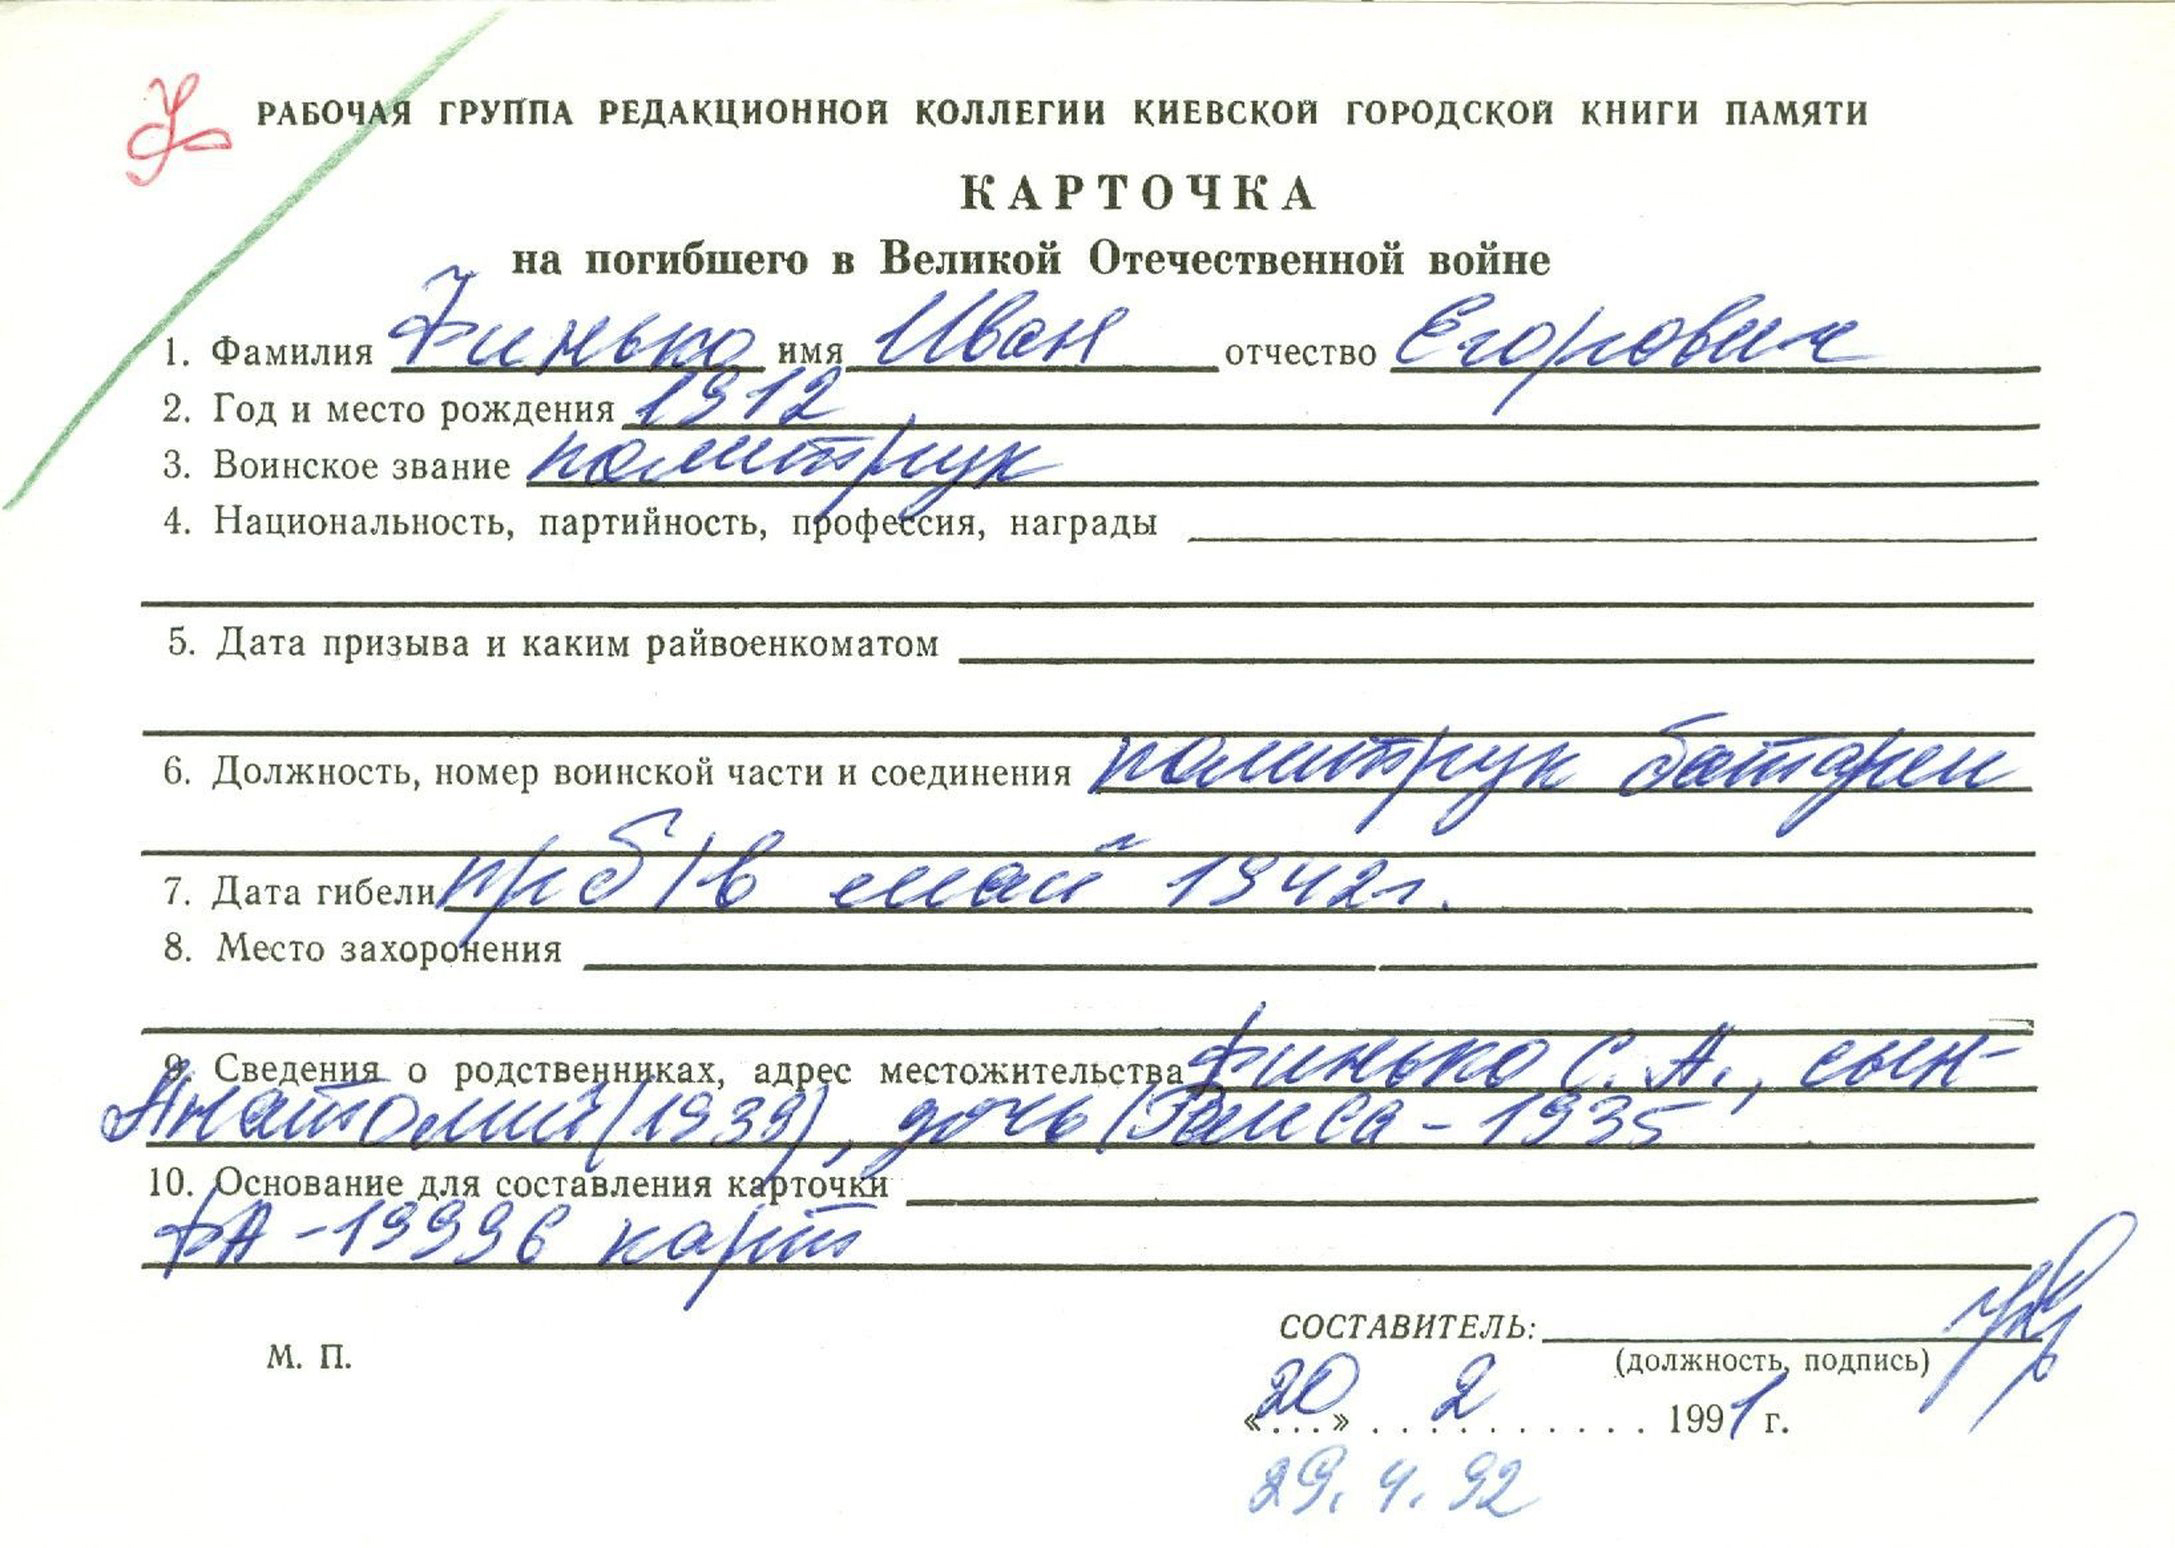 РАБОЧАЯ ГРУППА РЕДАКЦИОННОЙ КОЛЛЕГИИ КИЕВСКОЙ ГОРОДСКОЙ КНИГИ ПАМЯТИ
КАРТОЧКА
на погибшего в Великой Отечественной войне
1. Фамилия Финько имя Иван отчество Егорович
2. Год и место рождения 1912
3. Воинское звание политрук
4. Национальность, партийность, профессия, награды
5. Дата призыва и каким райвоенкоматом
6. Должность, номер воинской части и соединения политрук батареи
7. Дата гибели пр б/в май 1942г.
8. Место захоронения
9. Сведения о родственниках, адрес местожительства Финько С. А., сын-
Анатолий (1939), дочь Раиса - 1935
10. Основание для составления карточки
фА - 19996 карт
СОСТАВИТЕЛЬ:
М. П.
(должность, подпись)
«20» 2 1991 г.
29. 4. 92